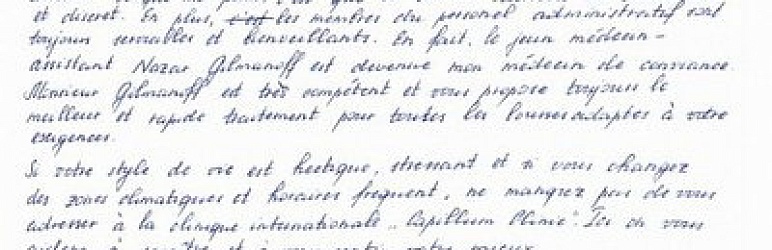 et discret. En plus, c'est les membres du personel administratif sont
toujour serviables et bienveillants. En fait, le jeun médecin-
assistant Nazar Gilmanoff est devenue mon médecin de confiance.
Monsieur Gilmanoff et très compétent et vous propose toujours le
meilleur et rapide traitement pour toutes les adaptes à votre
exigences.
Si votre style de vie est hectique, stressant et si vous changez
des zones climatiques et horaires frequent, ne manquez pas de vous
adresser à la clinique internationale „Capillum Clinic". Ici on vous